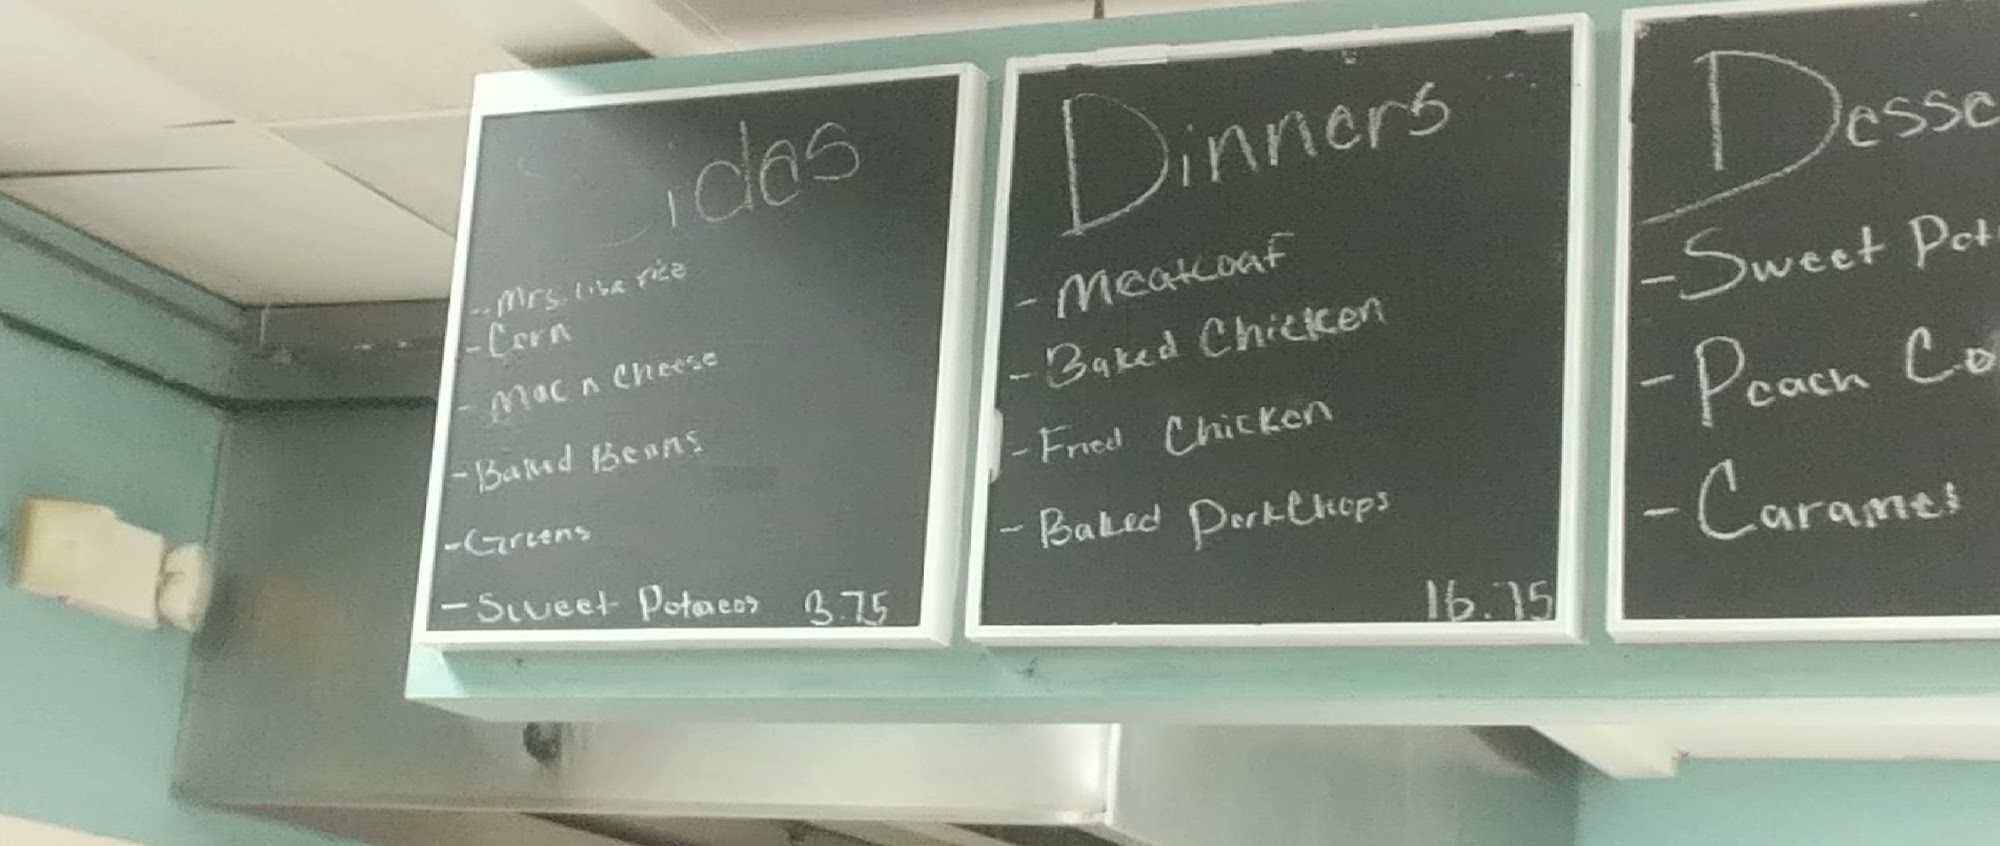 Sides
- Mrs. Liba rice
- Corn
- Mac n Cheese
- Baked Beans
- Greens
- Sweet Potatoes 3.75
Dinners
- Meatloaf
- Baked Chicken
- Fried Chicken
- Baked PorkChops
16.75
Desse
- Sweet Pot
- Peach Co
- Caramel